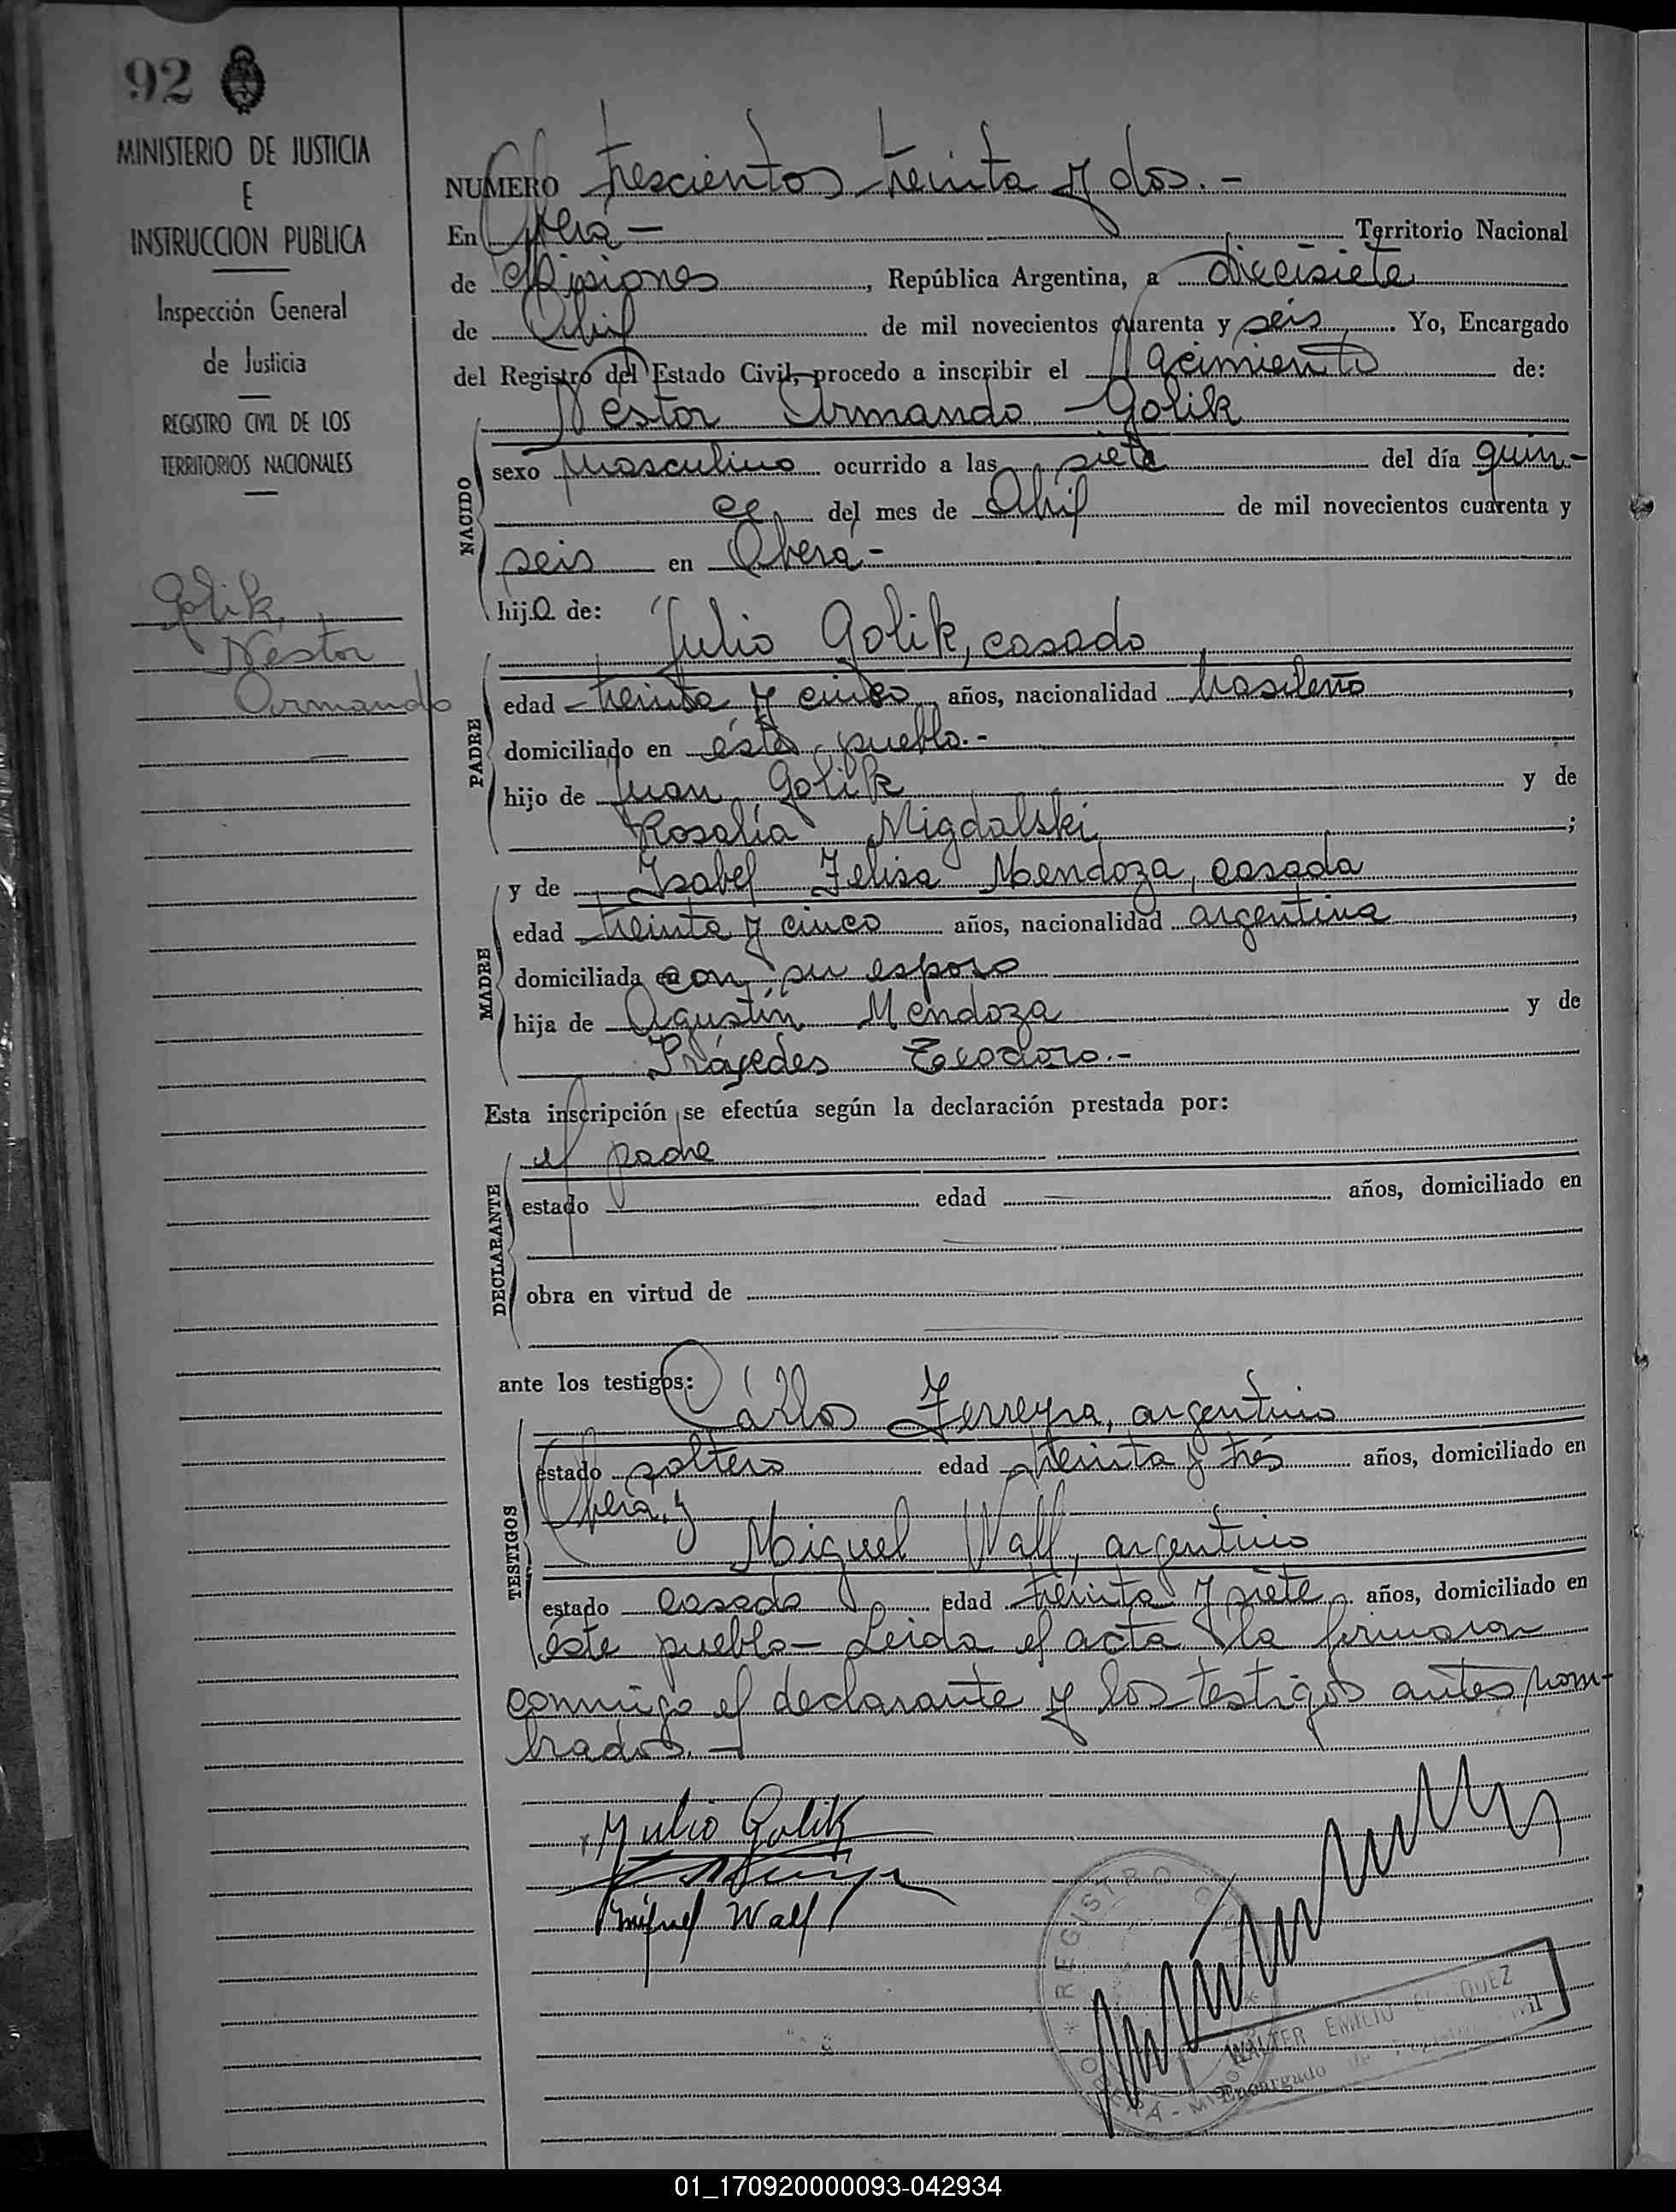 92
MINISTERIO DE JUSTICIA
E
INSTRUCCION PUBLICA
Inspección General
de Justicia
REGISTRO CIVIL DE LOS
TERRITORIOS NACIONALES
Golik,
Nestor
Armando
NUMERO trescientos treinta y dos.-
En Oberá- Territorio Nacional
de Misiones, República Argentina, a diecisiete
de Abril de mil novecientos cuarenta y seis. Yo, Encargado
del Registro del Estado Civil, procedo a inscribir el Nacimiento de:
Nestor Armando Golik
NACIDO
sexo masculino ocurrido a las siete del día quin-
ce del mes de Abril de mil novecientos cuarenta y
seis en Oberá-
hijo de:
Julio Golik, casado
PADRE
edad treinta y cinco años, nacionalidad brasileño,
domiciliado en éste pueblo.-
hijo de Juan Golik y de
Rosalía Migdalski;
y de Isabel Felisa Mendoza, casada
MADRE
edad treinta y cinco años, nacionalidad argentina,
domiciliada en con su esposo
hija de Agustín Mendoza y de
Práxedes Teodoro.-
Esta inscripción se efectúa según la declaración prestada por:
el padre
DECLARANTE
estado edad años, domiciliado en
obra en virtud de
ante los testigos:
Carlos Ferreyra, argentino
TESTIGOS
estado soltero edad treinta y trés años, domiciliado en
Oberá, y
Miguel Walf, argentino
estado casado edad treinta y siete años, domiciliado en
éste pueblo- Leida el acta la firmaron
conmigo el declarante y los testigos antes nom-
brados.-
Julio Golik
Miguel Walf
REGISTRO
WALTER EMILIO
Encargado de
01_170920000093-042934